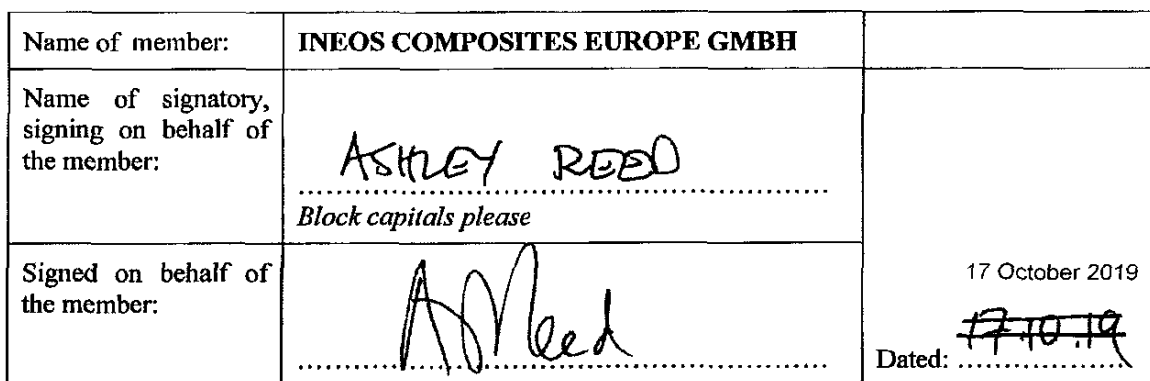 Name of member:
INEOS COMPOSITES EUROPE GMBH
Name of signatory,
signing on behalf of
the member:
ASHLEY REED
Block capitals please
Signed on behalf of
the member:
A Reed
17 October 2019
17.10.19
Dated: